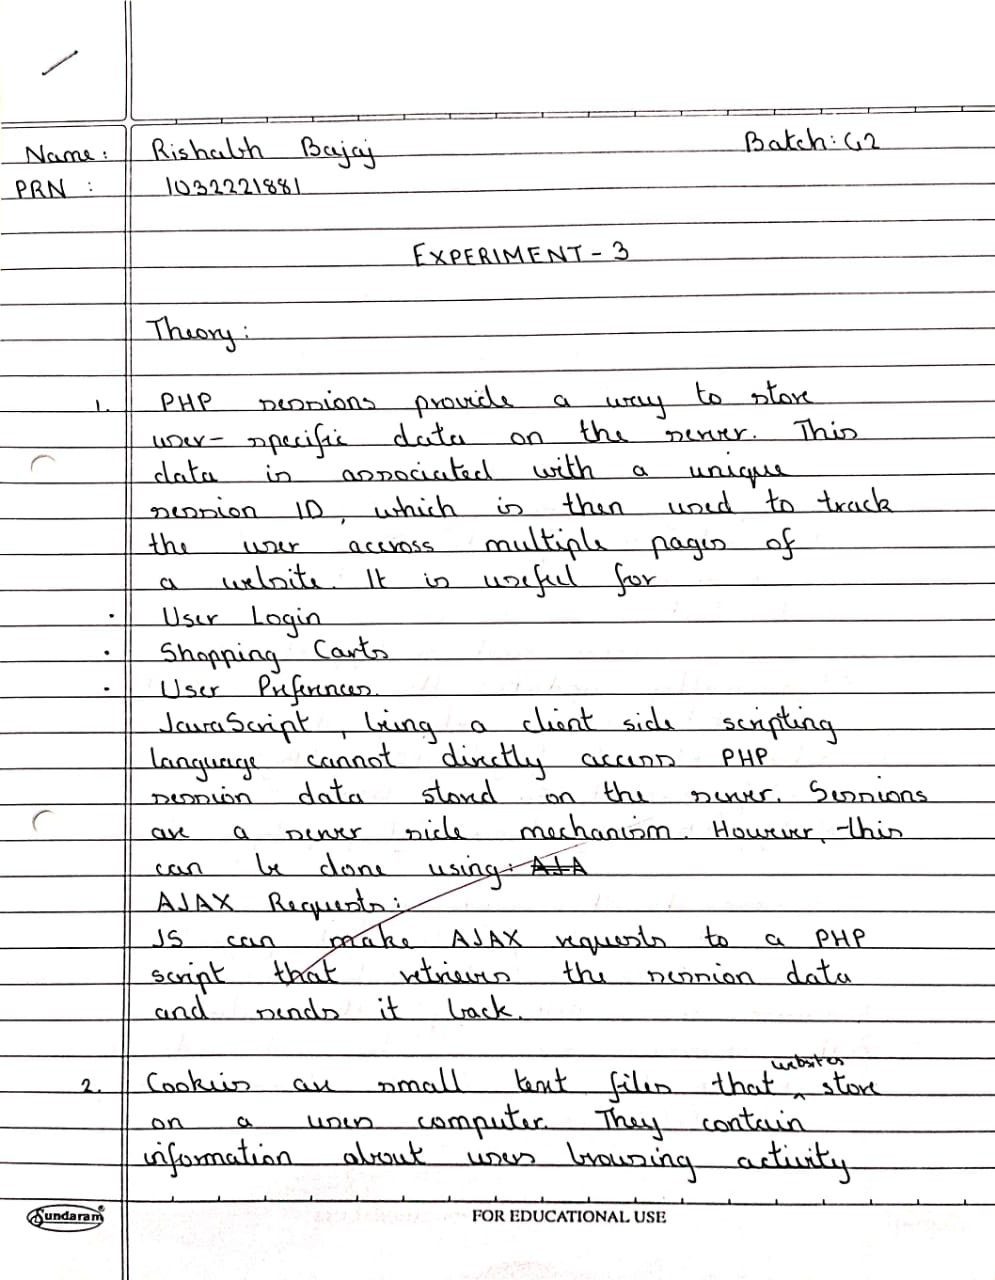 Name: Rishabh Bajaj Batch: G2
PRN : 1032221881
EXPERIMENT - 3
Theory:
1. PHP sessions provide a way to store
user- specific data on the server. This
data is associated with a unique
session ID, which is then used to track
the user accross multiple pages of
a website. It is useful for
· User Login
· Shopping Carts
· User Preferences.
JavaScript, being a client side scripting
language cannot directly access PHP
session data stored on the server. Sessions
are a server side mechanism. However, this
can be done using: AJA
AJAX Requests:
JS can make AJAX requests to a PHP
script that retrieves the session data
and sends it back.
2. Cookies are small text files that websites store
on a users computer. They contain
information about users browsing activity
Sundaram FOR EDUCATIONAL USE